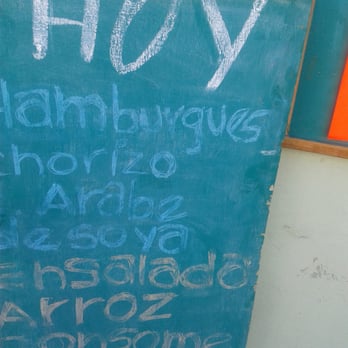 HOY
Hamburgues
chorizo
Arabe
de soya
Ensalada
Arroz
Consome